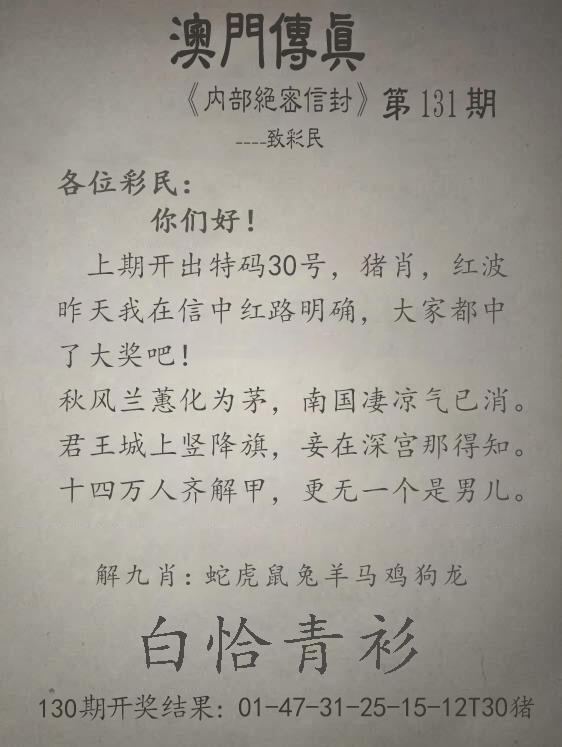 澳門傳眞
《内部絕密信封》第131期
----致彩民
各位彩民:
你们好!
上期开出特码30号，猪肖，红波
昨天我在信中红路明确，大家都中
了大奖吧!
秋风兰蕙化为茅，南国凄凉气已消。
君王城上竖降旗，妾在深宫那得知。
十四万人齐解甲，更无一个是男儿。
解九肖:蛇虎鼠兔羊马鸡狗龙
白恰青衫
130期开奖结果: 01-47-31-25-15-12T30猪